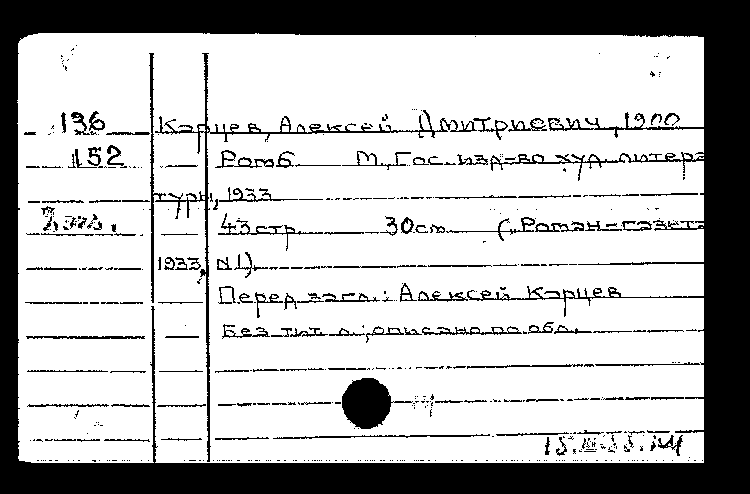 136 Карцев, Алексей Дмитриевич, 1900
152 Ромб М., Гос. изд-во худ. литера
туры, 1933
43 стр. 30 см. („Роман-газета
1933, N1).
Перед загл.: Алексей Карцев
Без тит. л.; описано по обл.